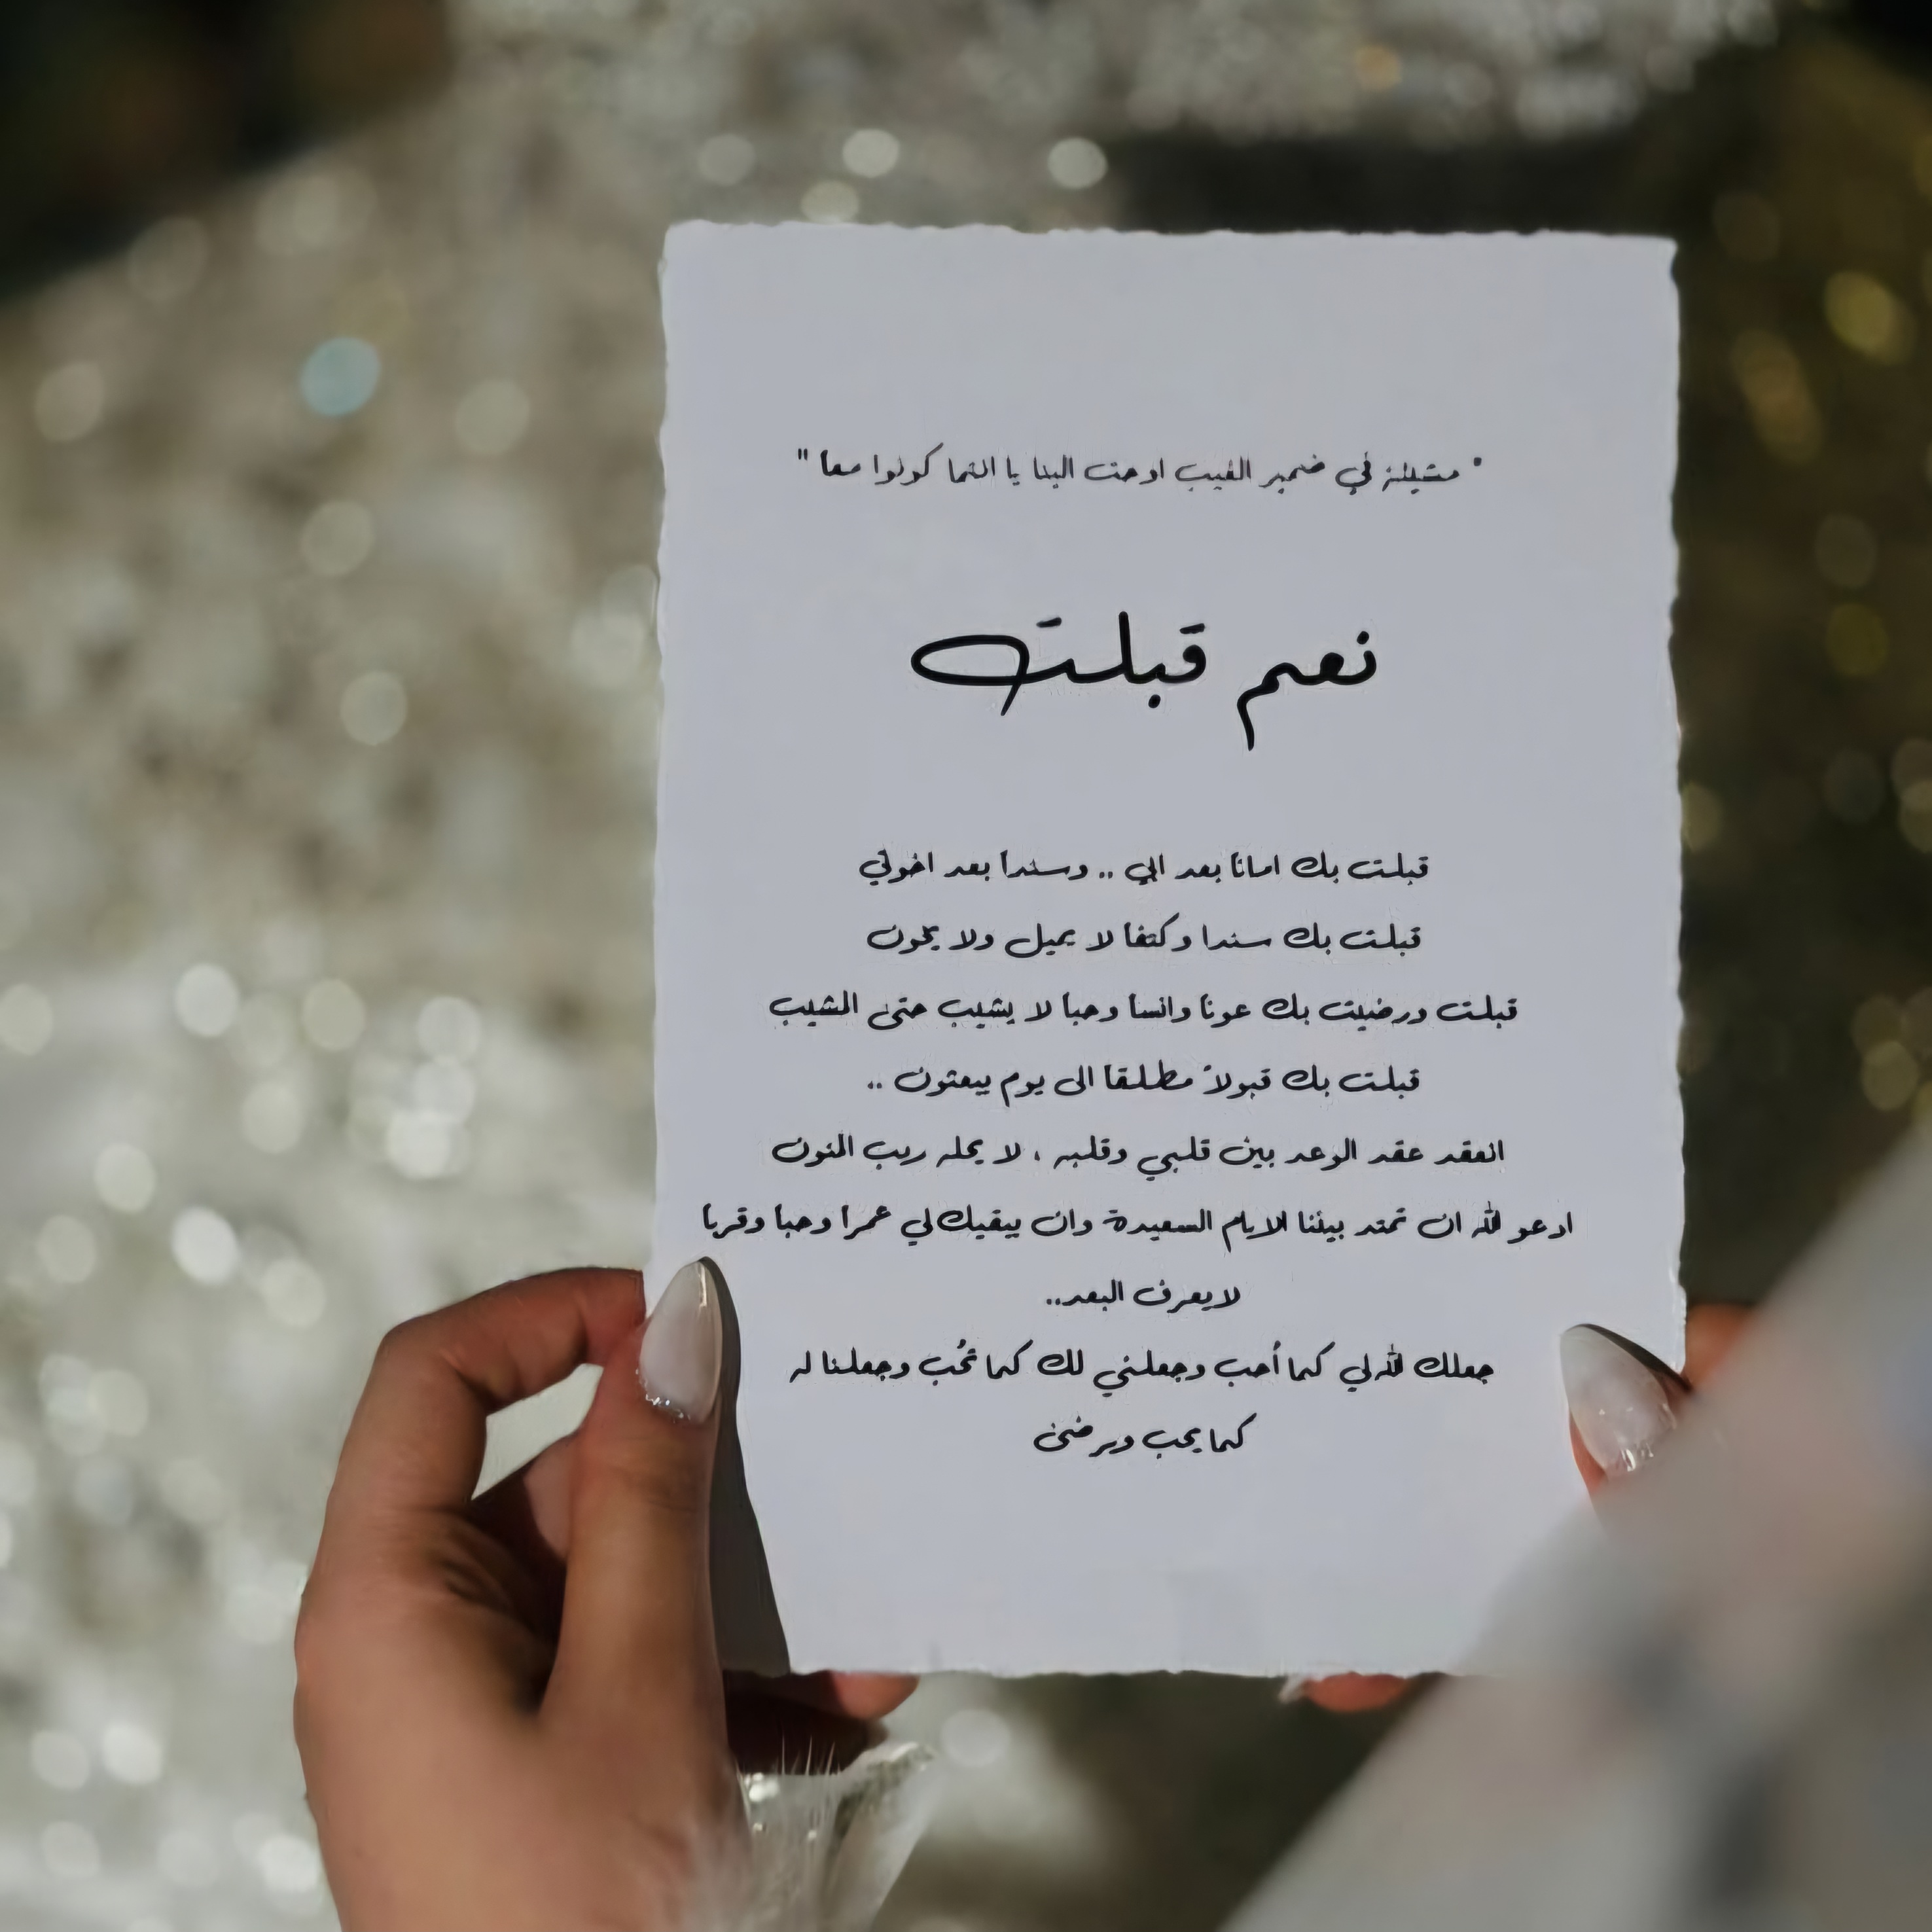 " مشيئة في ضمير الغيب اوحت الينا يا انتما كونوا معا "
نعم قبلت
قبلت بك امانا بعد ابي .. وسندا بعد اخوتي
قبلت بك سندا وكتفا لا يميل ولا يخون
قبلت ورضيت بك عونا وانسا وحبا لا يشيب حتى المشيب
قبلت بك قبولاً مطلقا الى يوم يبعثون ..
انعقد عقد الوعد بين قلبي وقلبه ، لا يحله ريب المنون
ادعو لله ان تمتد بيننا الايام السعيدة وان يبقيك لي عمرا وحبا وقربا
لايعرف البعد..
جعلك لله لي كما أحب وجعلني لك كما تُحب وجعلنا له
كما يحب ويرضى